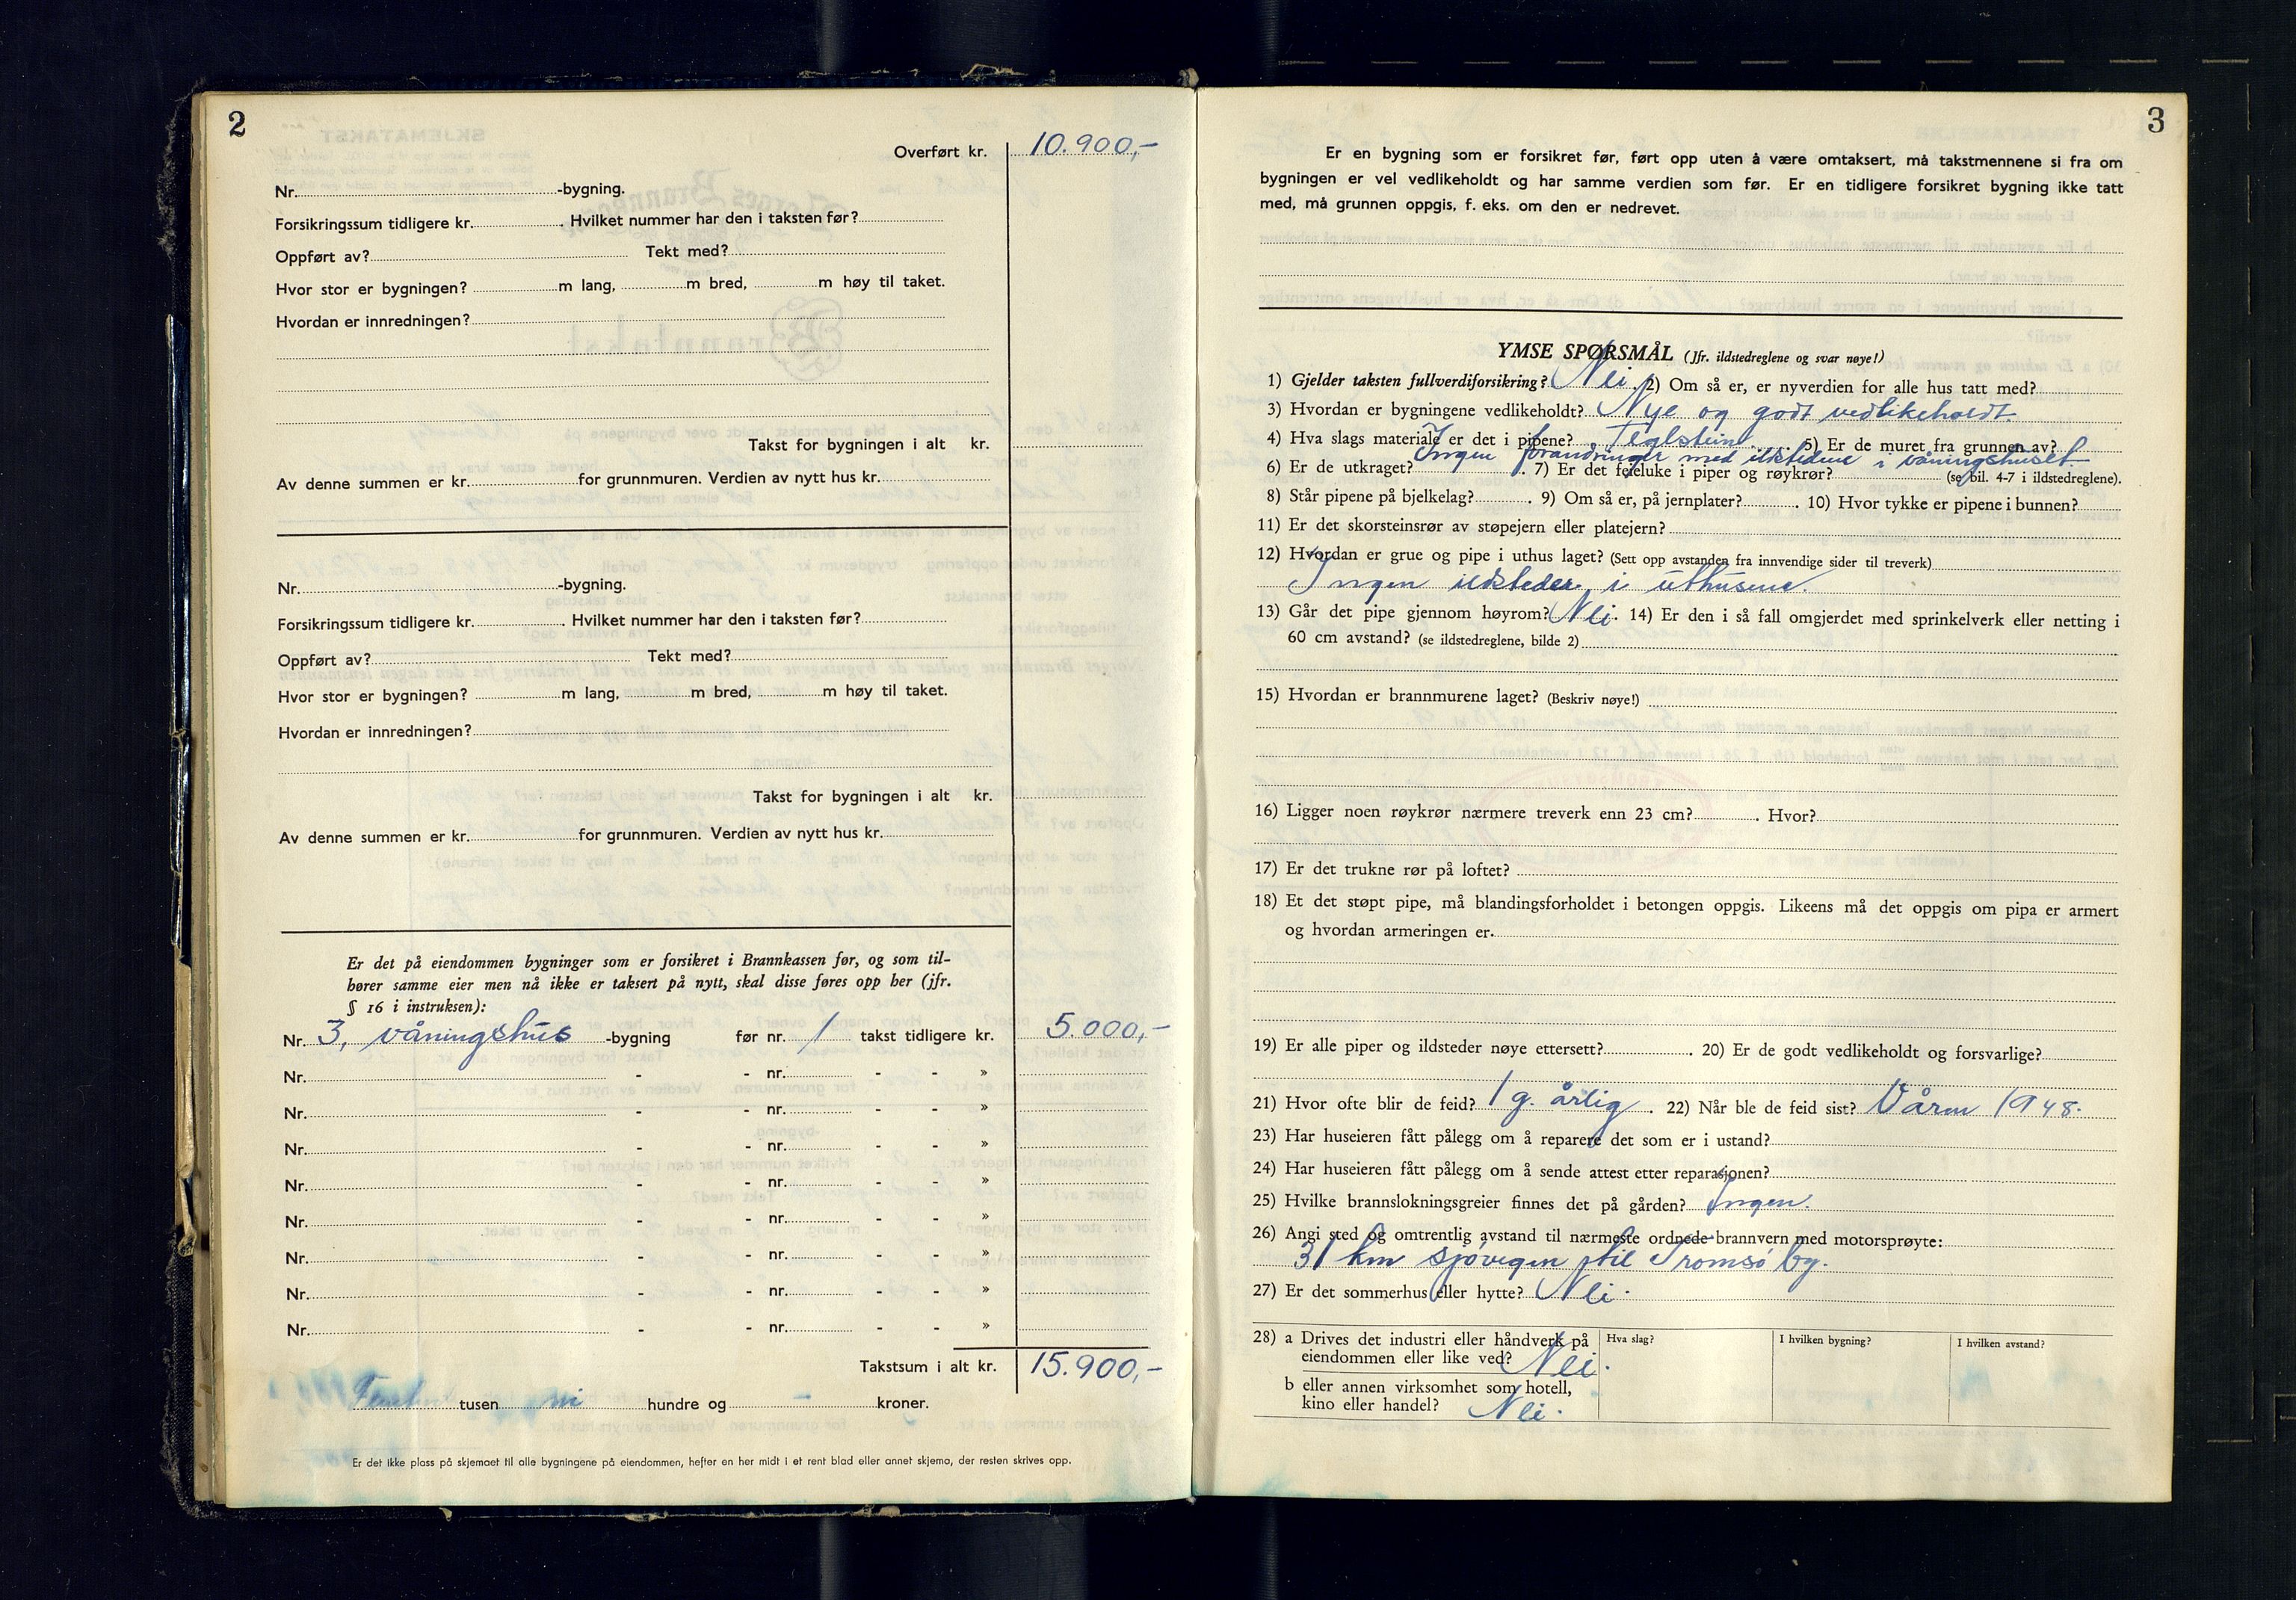 2
Overført kr. 10.900,-
Nr. -bygning.
Forsikringssum tidligere kr. . Hvilket nummer har den i taksten før?
Oppført av? Tekt med?
Hvor stor er bygningen? m lang, m bred, m høy til taket.
Hvordan er innredningen?
Takst for bygningen i alt kr.
Av denne summen er kr. for grunnmuren. Verdien av nytt hus kr.
Nr. -bygning.
Forsikringssum tidligere kr. . Hvilket nummer har den i taksten før?
Oppført av? Tekt med?
Hvor stor er bygningen? m lang, m bred, m høy til taket.
Hvordan er innredningen?
Takst for bygningen i alt kr.
Av denne summen er kr. for grunnmuren. Verdien av nytt hus kr.
Er det på eiendommen bygninger som er forsikret i Brannkassen før, og som til-
hører samme eier men nå ikke er taksert på nytt, skal disse føres opp her (jfr.
§ 16 i instruksen):
Nr. 3, våningshus -bygning før nr. 1 takst tidligere kr. 5.000,-
Nr. - - nr. - - »
Nr. - - nr. - - »
Nr. - - nr. - - »
Nr. - - nr. - - »
Nr. - - nr. - - »
Nr. - - nr. - - »
Nr. - - nr. - - »
Nr. - - nr. - - »
Takstsum i alt kr. 15.900,-
tusen ni hundre og - kroner.
Er det ikke plass på skjemaet til alle bygningene på eiendommen, hefter en her midt i et rent blad eller annet skjema, der resten skrives opp.
3
Er en bygning som er forsikret før, ført opp uten å være omtaksert, må takstmennene si fra om
bygningen er vel vedlikeholdt og har samme verdien som før. Er en tidligere forsikret bygning ikke tatt
med, må grunnen oppgis, f. eks. om den er nedrevet.
YMSE SPØRSMÅL (Jfr. ildstedreglene og svar nøye!)
1) Gjelder taksten fullverdiforsikring? Nei. 2) Om så er, er nyverdien for alle hus tatt med?
3) Hvordan er bygningene vedlikeholdt? Nye og godt vedlikeholdt.
4) Hva slags materiale er det i pipene? Teglstein. 5) Er de muret fra grunnen av?
Ingen forandringer med ildstedene i våningshuset
6) Er de utkraget? . 7) Er det feieluke i piper og røykrør? (se bil. 4-7 i ildstedreglene).
8) Står pipene på bjelkelag? . 9) Om så er, på jernplater? . 10) Hvor tykke er pipene i bunnen?
11) Er det skorsteinsrør av støpejern eller platejern?
12) Hvordan er grue og pipe i uthus laget? (Sett opp avstanden fra innvendige sider til treverk)
Ingen ildsteder i uthusene.
13) Går det pipe gjennom høyrom? Nei. 14) Er den i så fall omgjerdet med sprinkelverk eller netting i
60 cm avstand? (se ildstedreglene, bilde 2)
15) Hvordan er brannmurene laget? (Beskriv nøye!)
16) Ligger noen røykrør nærmere treverk enn 23 cm? . Hvor?
17) Er det trukne rør på loftet?
18) Et det støpt pipe, må blandingsforholdet i betongen oppgis. Likeens må det oppgis om pipa er armert
og hvordan armeringen er.
19) Er alle piper og ildsteder nøye ettersett? . 20) Er de godt vedlikeholdt og forsvarlige?
21) Hvor ofte blir de feid? 1 g. årlig . 22) Når ble de feid sist? Våren 1948.
23) Har huseieren fått pålegg om å reparere det som er i ustand?
24) Har huseieren fått pålegg om å sende attest etter reparasjonen?
25) Hvilke brannslokningsgreier finnes det på gården? Ingen.
26) Angi sted og omtrentlig avstand til nærmeste ordnede brannvern med motorsprøyte:
31 km sjøvegen til Tromsø by.
27) Er det sommerhus eller hytte? Nei.
28) a Drives det industri eller håndverk på Hva slag? I hvilken bygning? I hvilken avstand?
eiendommen eller like ved? Nei.
b eller annen virksomhet som hotell,
kino eller handel? Nei.